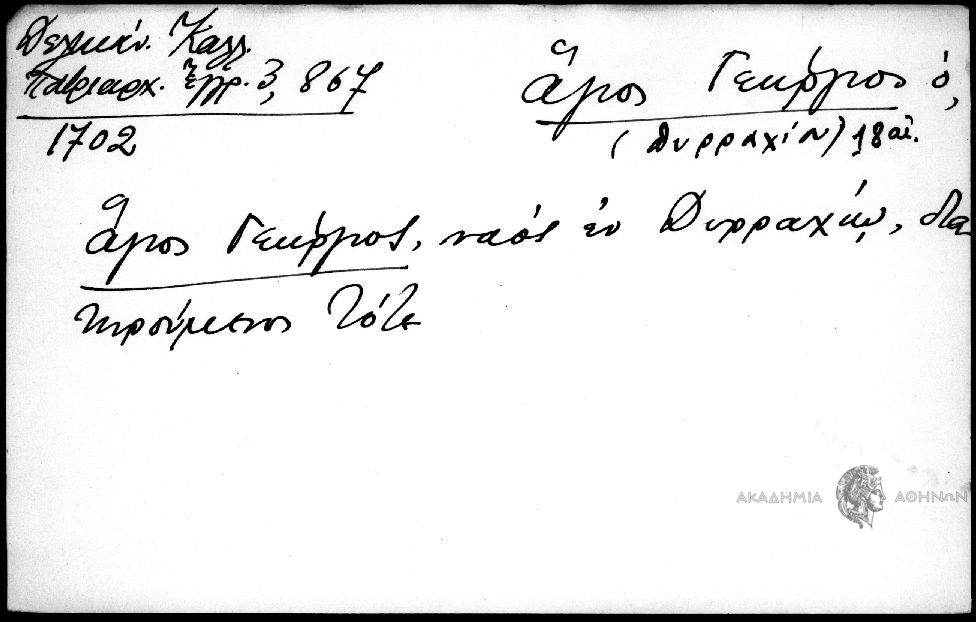 Δελικάν. Καλλ.
Πατριαρχ. Ἔγγρ. 3, 867
1702
Ἅγιος Γεώργιος ὁ,
(Δυρραχίου) 18 αἰ.
Ἅγιος Γεώργιος, ναός ἐν Δυρραχίῳ, δια
τηρούμενος τότε
ΑΚΑΔΗΜΙΑ ΑΘΗΝΩΝ